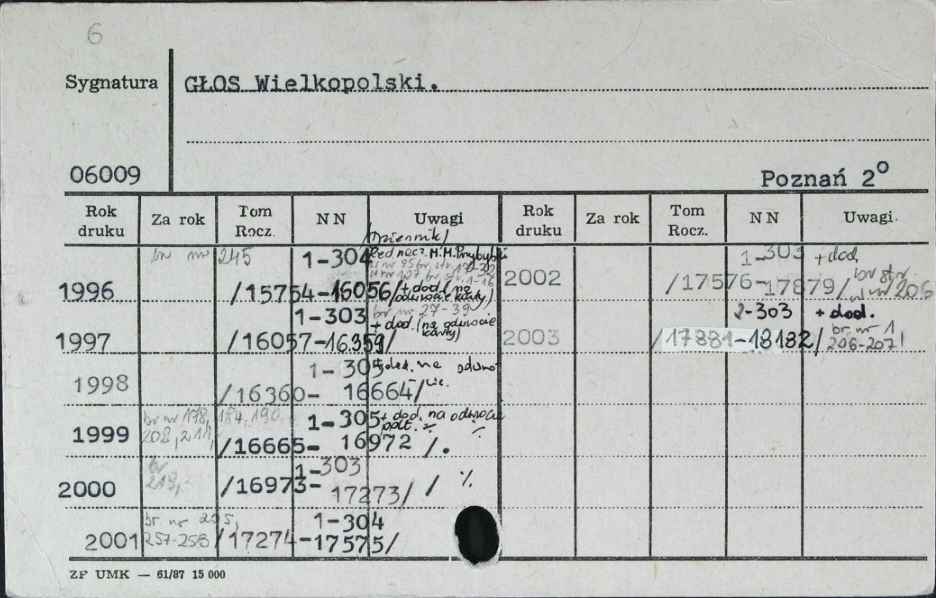 6
Sygnatura GŁOS Wielkopolski.
06009 Poznań 2°
Rok druku Za rok Tom Rocz. NN Uwagi Rok druku Za rok Tom Rocz. NN Uwagi.
/Dziennik/
br nr 245 1-304 Red nacz. M.M. Przybylski
1996 /15754-16056/ + dod. (na odwrocie karty)
1-303 br nr 27-39
1997 /16057-16359/ + dod. (na odwrocie karty)
1998 1-305 + dod. na odwrocie
/16360- 16664/
br nr 178, 184, 190, 1-305 + dod. na odwrocie
1999 208, 211, /16665- 16972 /.
br 1-303
2000 219, /16973- 17273/ / %
br nr 205, 1-304
2001 257-258 /17274-17575/
1-303 + dod.
2002 /17576-17879/ br str. w nr 206
2-303 + dod.
2003 /17881-18182/ br nr 1 206-207!
ZF UMK — 61/87 15 000